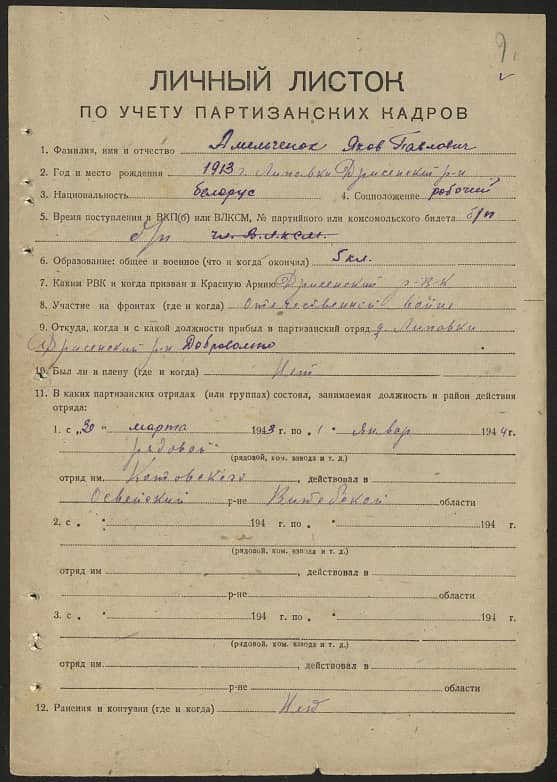 9
ЛИЧНЫЙ ЛИСТОК
ПО УЧЕТУ ПАРТИЗАНСКИХ КАДРОВ
1. Фамилия, имя и отчество Амельченок Яков Павлович
2. Год и место рождения 1913 г. Липовки Дрисенский р-н
3. Национальность белорус 4. Социоложение рабочий
5. Время поступления в ВКП(б) или ВЛКСМ, № партийного или комсомольского билета б/п
б/п чл. ВЛКСМ.
6. Образование: общее и военное (что и когда окончил) 5 кл.
7. Каким РВК и когда призван в Красную Армию Дрисенский Р-В-К
8. Участие на фронтах (где и когда) Отечественной войне
9. Откуда, когда и с какой должности прибыл в партизанский отряд д. Липовки
Дрисенский р-н Добровольно
10. Был ли в плену (где и когда) Нет
11. В каких партизанских отрядах (или группах) состоял, занимаемая должность и район действия
отряда:
1. с „30 " марта 1943 г. по „1 " Январ 1944 г.
рядовой
(рядовой, ком. взвода и т. д.)
отряд им. Котовского, действовал в
Освейский р-не Витебской области
2. с „ " 194 г. по „ " 194 г.
(рядовой, ком. взвода и т. д.)
отряд им , действовал в
р-не области
3. с „ " 194 г. по „ " 194 г.
(рядовой, ком. взвода и т. д.)
отряд им. , действовал в
р-не области
12. Ранения и контузии (где и когда) Нет